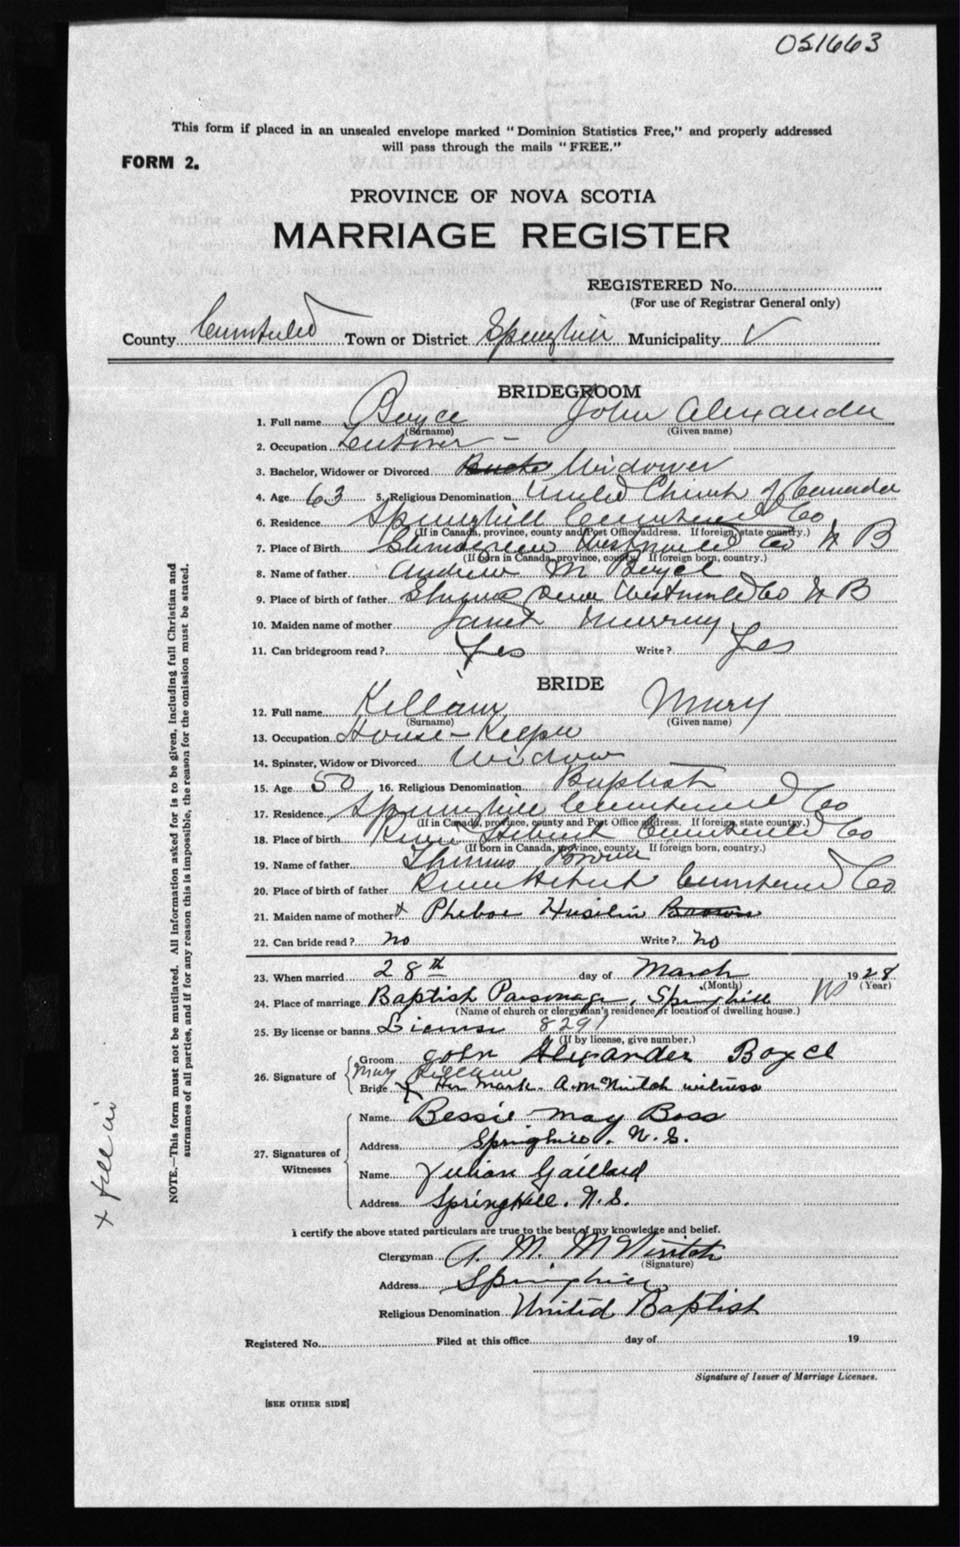 051663
This form if placed in an unsealed envelope marked "Dominion Statistics Free," and properly addressed
will pass through the mails "FREE."
FORM 2.
PROVINCE OF NOVA SCOTIA
MARRIAGE REGISTER
REGISTERED No.
(For use of Registrar General only)
County Town or District Springhill Municipality
BRIDEGROOM
1. Full name John Alexander
(Surname) (Given name)
2. Occupation
3. Bachelor, Widower or Divorced Widower
4. Age 63 5. Religious Denomination United Church of Canada
6. Residence Springhill Co
(If in Canada, province, county and Post Office address. If foreign, state country.)
7. Place of Birth Co N B
(If born in Canada, province, county. If foreign born, country.)
8. Name of father Andrew M
9. Place of birth of father Co N B
10. Maiden name of mother Janet Murray
11. Can bridegroom read? Yes Write? Yes
BRIDE
12. Full name Killam Mary
(Surname) (Given name)
13. Occupation House-Keeper
14. Spinster, Widow or Divorced Widow
15. Age 50 16. Religious Denomination Baptist
17. Residence Springhill Co
(If in Canada, province, county and Post Office address. If foreign, state country.)
18. Place of birth River Hebert Co
(If born in Canada, province, county. If foreign born, country.)
19. Name of father Thomas Brown
20. Place of birth of father River Hebert Co
21. Maiden name of mother x Pheboe Brown
22. Can bride read? no Write? no
23. When married 28th day of March 1928
(Month) (Year)
24. Place of marriage Baptist Parsonage, Springhill NS
(Name of church or clergyman's residence or location of dwelling house.)
25. By license or banns License 8291
(If by license, give number.)
26. Signature of Groom John Alexander
Mary Killam
Bride x Her mark. witness
27. Signatures of Witnesses Name Bessie May Boss
Address Springhill. N.S.
Name Gaillard
Address Springhill. N.S.
I certify the above stated particulars are true to the best of my knowledge and belief.
Clergyman A. M.
(Signature)
Address Springhill
Religious Denomination United Baptist
Registered No. Filed at this office day of 19
Signature of Issuer of Marriage Licenses.
[SEE OTHER SIDE]
NOTE.—This form must not be mutilated. All information asked for is to be given, including full Christian and
surnames of all parties, and if for any reason this is impossible, the reason for the omission must be stated.
x fill in